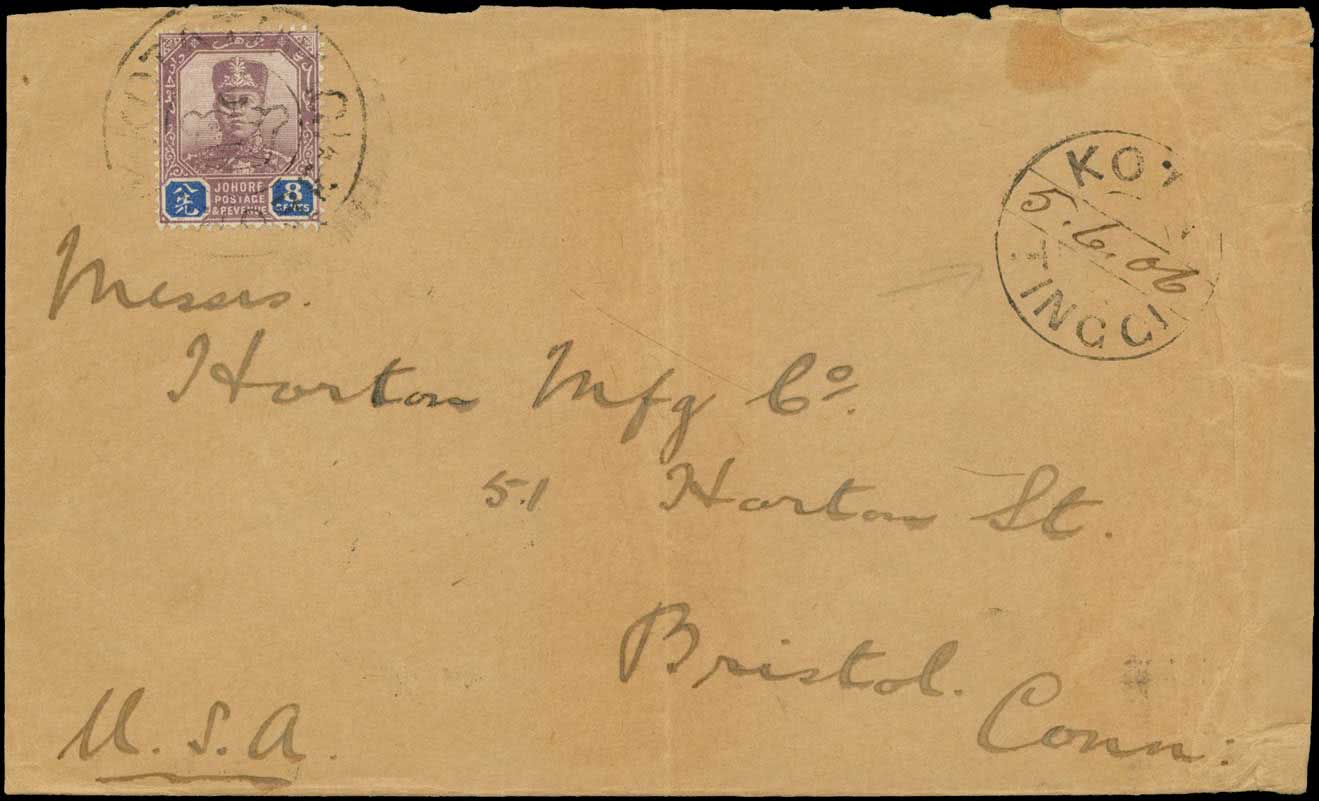 八
先
JOHORE
POSTAGE
& REVENUE
8
CENTS
KOTA
TINGGI
5.6.06
Messrs.
Horton Mfg Co.
51 Horton St.
Bristol.
Conn:
U.S.A.